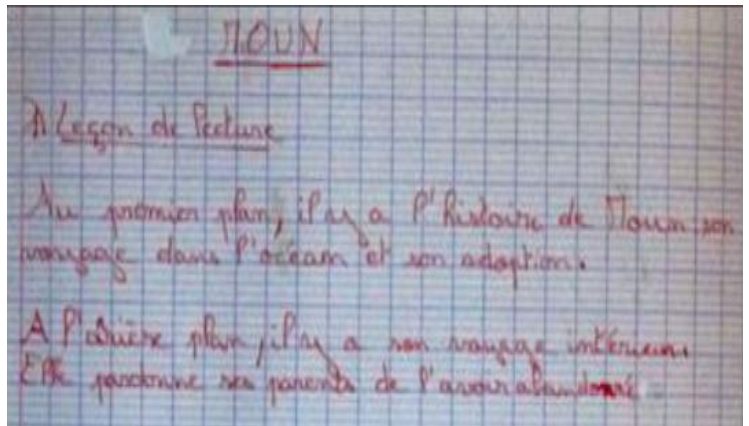 MOUN
1) Leçon de lecture
Au premier plan, il y a l'histoire de Moun, son
voyage dans l'océan et son adoption.
A l'arrière plan, il y a son voyage intérieur.
Elle pardonne ses parents de l'avoir abandonné.